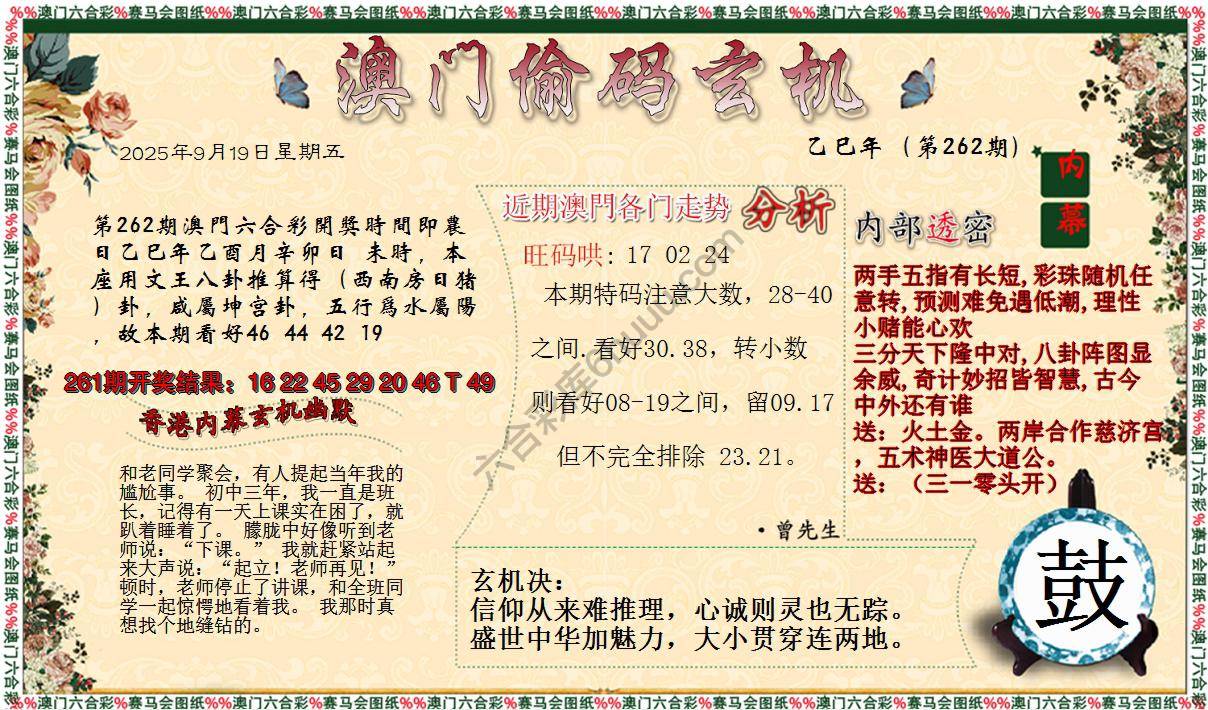 %%澳门六合彩%赛马会图纸%%澳门六合彩%赛马会图纸%%澳门六合彩%赛马会图纸%%澳门六合彩%赛马会图纸%%澳门六合彩%赛马会图纸%%澳门六合彩%赛马会图纸%%
澳门偷码玄机
2025年9月19日星期五
乙巳年（第262期）
内幕
第262期澳門六合彩開獎時間即農
日乙巳年乙酉月辛卯日 未時，本
座用文王八卦推算得（西南房日猪
）卦，咸屬坤宫卦，五行爲水屬陽
，故本期看好46 44 42 19
261期开奖结果：16 22 45 29 20 46 T 49
香港内幕玄机幽默
和老同学聚会，有人提起当年我的
尴尬事。 初中三年，我一直是班
长，记得有一天上课实在困了，就
趴着睡着了。 朦胧中好像听到老
师说：“下课。” 我就赶紧站起
来大声说：“起立！老师再见！”
顿时，老师停止了讲课，和全班同
学一起惊愕地看着我。 我那时真
想找个地缝钻的。
近期澳門各门走势 分析
旺码哄: 17 02 24
本期特码注意大数，28-40
之间.看好30.38，转小数
则看好08-19之间，留09.17
但不完全排除 23.21。
·曾先生
内部透密
两手五指有长短,彩珠随机任
意转,预测难免遇低潮,理性
小赌能心欢
三分天下隆中对,八卦阵图显
余威,奇计妙招皆智慧,古今
中外还有谁
送：火土金。两岸合作慈济宫
，五术神医大道公。
送：（三一零头开）
玄机决：
信仰从来难推理，心诚则灵也无踪。
盛世中华加魅力，大小贯穿连两地。
鼓
%%澳门六合彩%赛马会图纸%%澳门六合彩%赛马会图纸%%澳门六合彩%赛马会图纸%%澳门六合彩%赛马会图纸%%澳门六合彩%赛马会图纸%%澳门六合彩%赛马会图纸%%